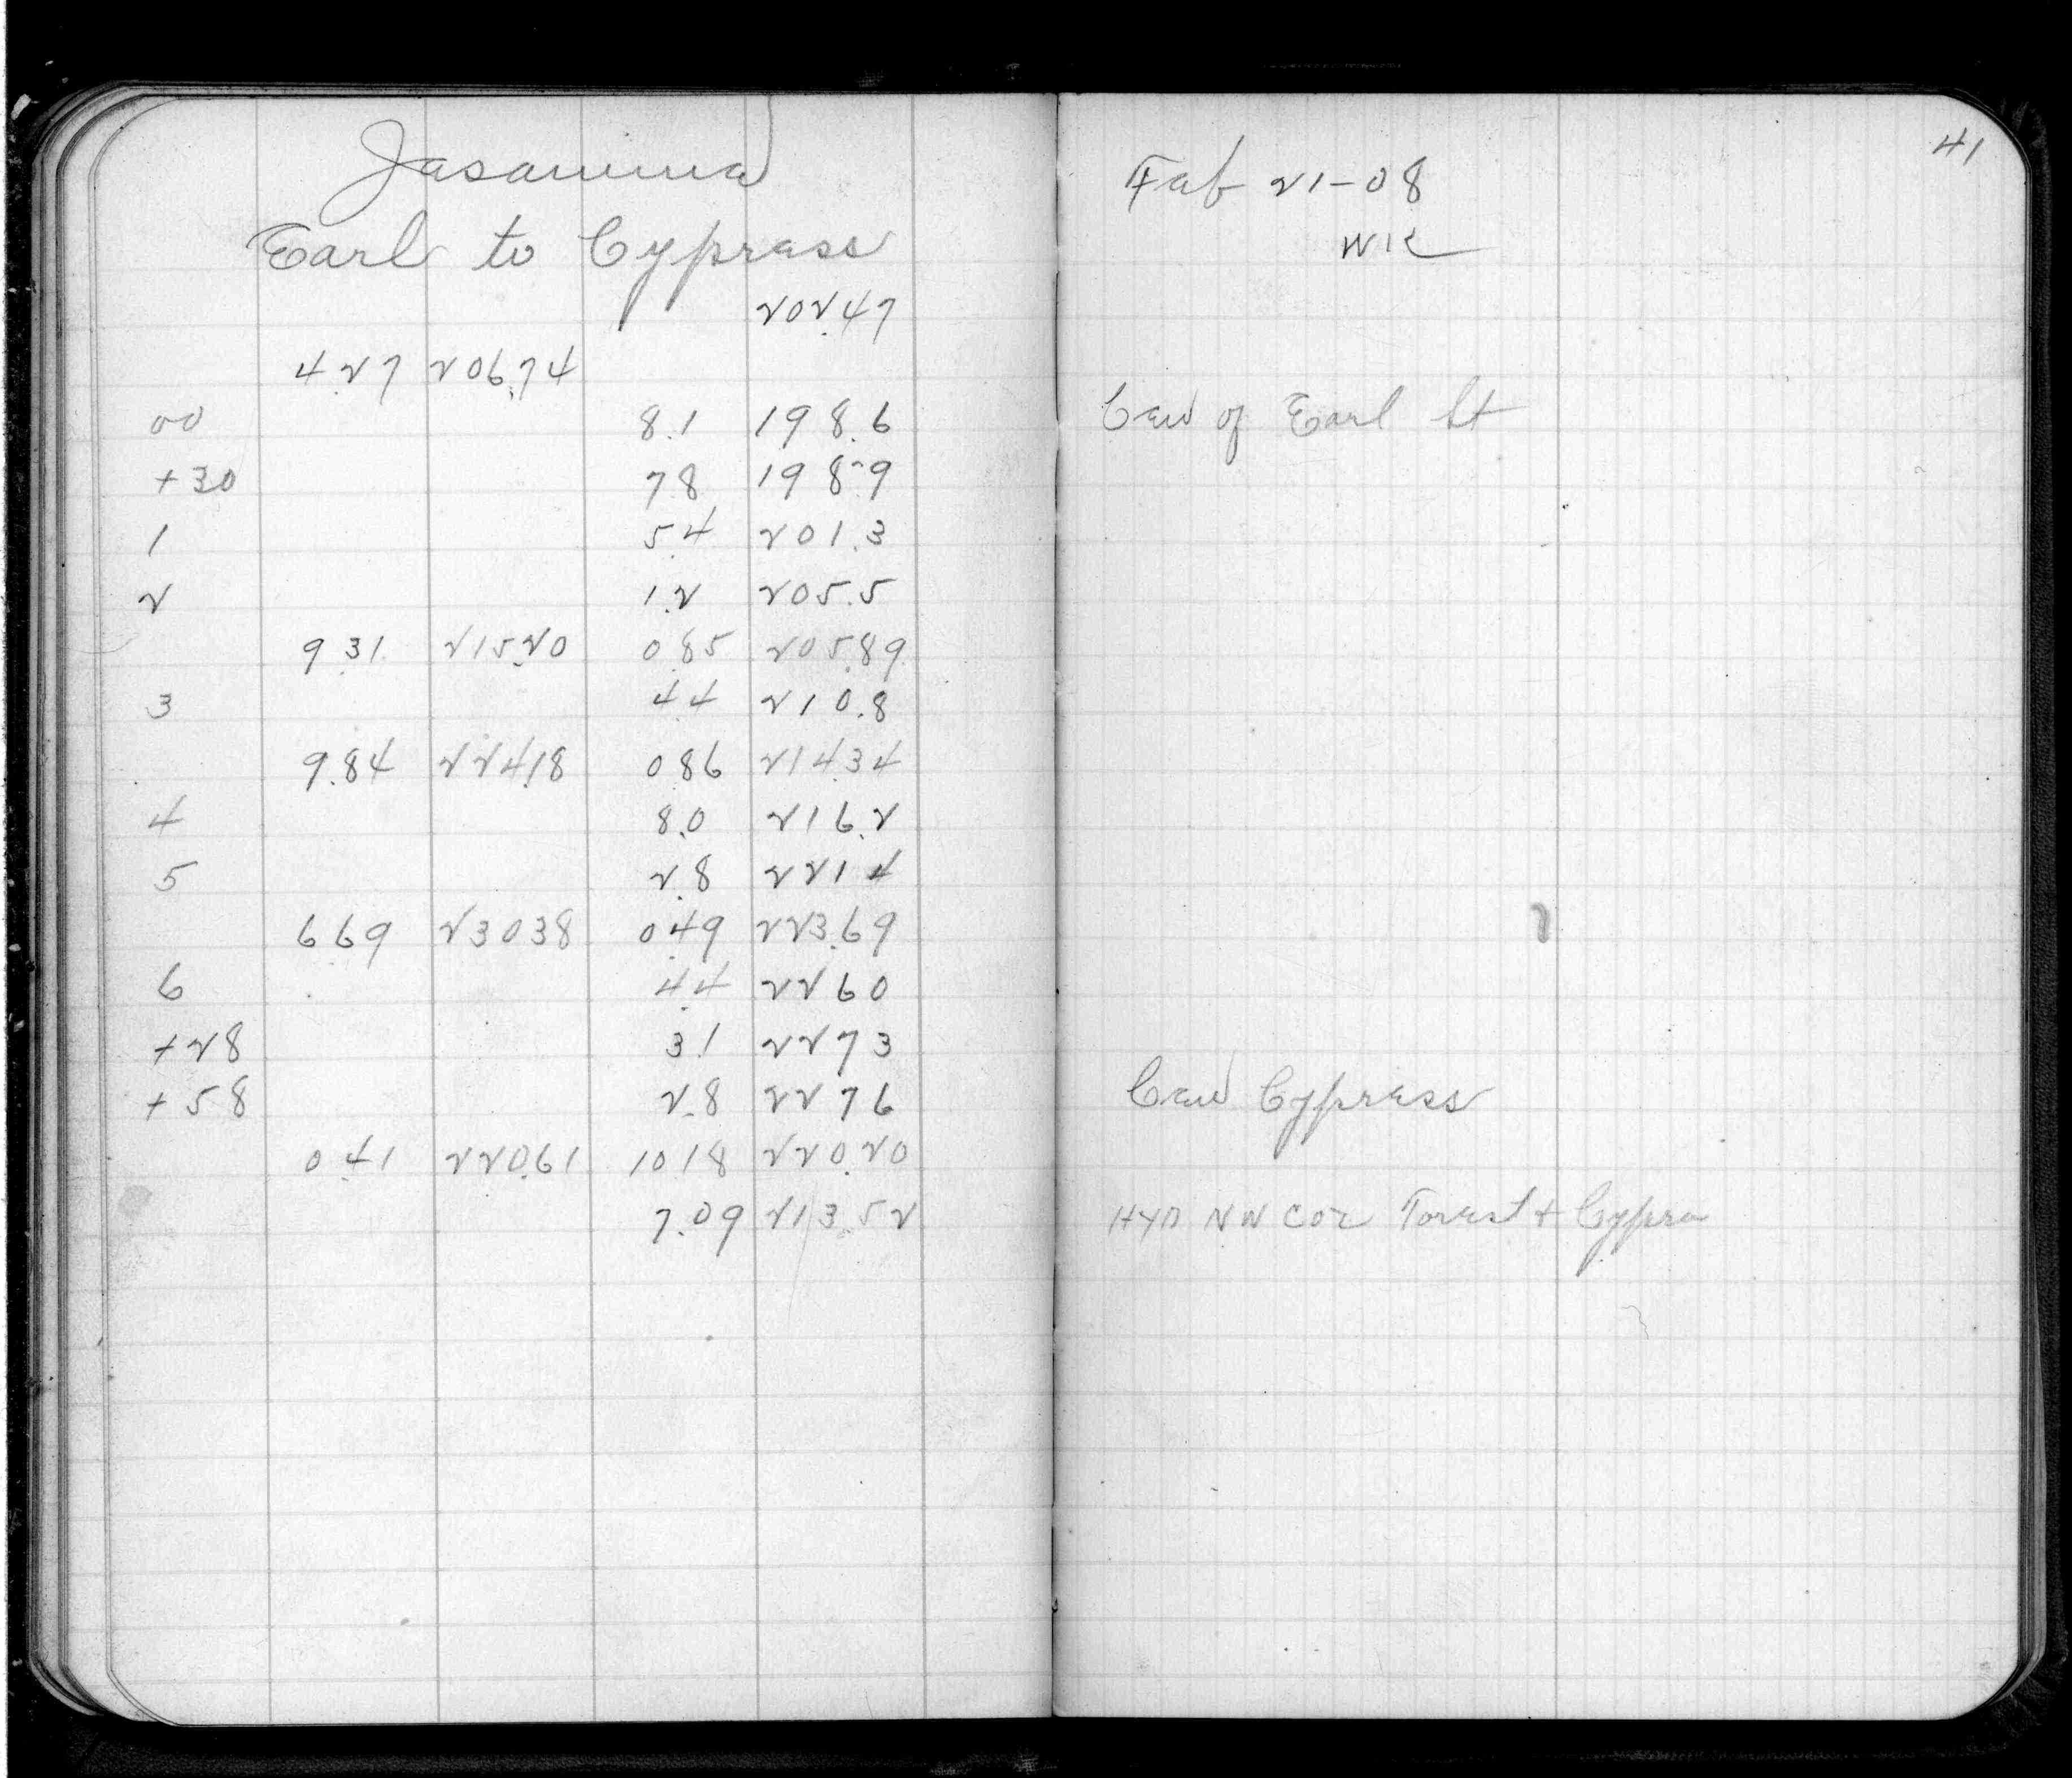 Jasamine
Earl to Cypress
202.47
4.27 206.74
00 8.1 198.6
+30 7.8 198.9
1 5.4 201.3
2 1.2 205.5
9.31 215.20 0.85 205.89
3 4.4 210.8
9.84 224.18 0.86 214.34
4 8.0 216.2
5 2.8 221.4
6.69 230.38 0.49 223.69
6 4.4 226.0
+28 3.1 227.3
+58 2.8 227.6
0.41 220.61 10.18 220.20
7.09 213.52
41
Feb 21-08
Cen of Earl St
Cen Cypress
HYD NW COR Forest + Cypress